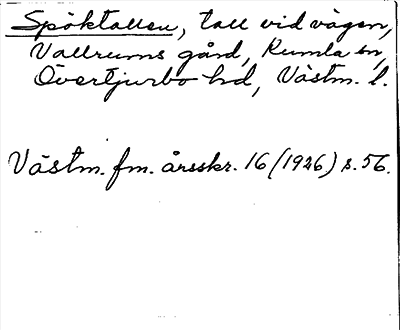 Spöktallen, tall vid vägen,
Vallrums gård, Kumla sn,
Övertjurbo hd, Västm. l.
Västm. fm. årsskr. 16 (1926) s. 56.